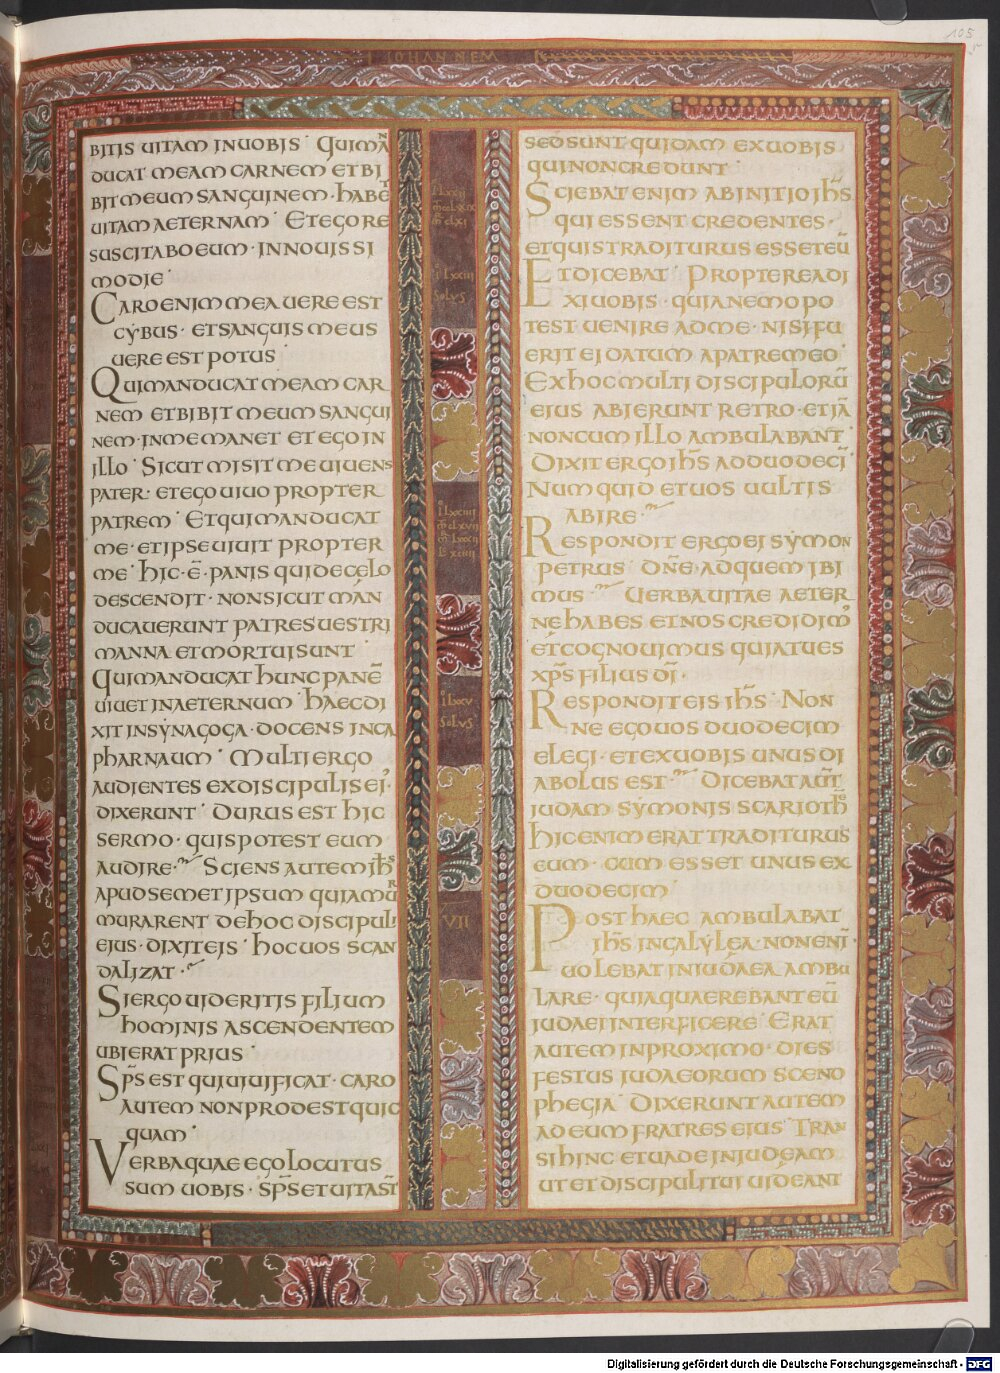 105
r
BITIS UITAM INUOBIS· QUIMAN̄
DUCAT MEAM CARNEM ETBI
BIT MEUM SANGUINEM· HABET̄
UITAM AETERNAM· ETEGO RE
SUSCITABO EUM· INNOUISSI
MO DIE·
CARO ENIM MEA UERE EST
CYBUS· ET SANGUIS MEUS
UERE EST POTUS·
QUI MANDUCAT MEAM CAR
NEM ET BIBIT MEUM SANGUI
NEM· IN ME MANET ET EGO IN
ILLO· SICUT MISIT ME UIUENS
PATER· ET EGO UIUO PROPTER
PATREM· ET QUI MANDUCAT
ME· ET IPSE UIUIT PROPTER
ME· HIC· Ē· PANIS QUI DE CELO
DESCENDIT· NON SICUT MAN
DUCAUERUNT PATRES UESTRI
MANNA ET MORTUI SUNT
QUI MANDUCAT HUNC PANĒ
UIUET IN AETERNUM· HAEC DI
XIT IN SYNAGOGA· DOCENS IN CA
PHARNAUM· MULTI ERGO
AUDIENTES EX DISCIPULIS EI'
DIXERUNT· DURUS EST HIC
SERMO· QUIS POTEST EUM
AUDIRE· SCIENS AUTEM IH̄S
APUD SEMET IPSUM QUIA MUR
MURARENT DE HOC DISCIPULI
EIUS· DIXIT EIS· HOC UOS SCAN
DALIZAT·
SI ERGO UIDERITIS FILIUM
HOMINIS ASCENDENTEM
UBI ERAT PRIUS·
SP̄S EST QUI UIUIFICAT· CARO
AUTEM NON PRODEST QUIC
QUAM·
VERBA QUAE EGO LOCUTUS
SUM UOBIS· SP̄S ET UITA ST̄
VII
SED SUNT QUIDAM EX UOBIS
QUI NON CREDUNT·
SCIEBAT ENIM AB INITIO IH̄S
QUI ESSENT CREDENTES·
ET QUIS TRADITURUS ESSET EŪ
ET DICEBAT· PROPTEREA DI
XI UOBIS· QUIA NEMO PO
TEST UENIRE AD ME· NISI FU
ERIT EI DATUM A PATRE MEO
EX HOC MULTI DISCIPULORŪ
EIUS ABIERUNT RETRO· ET IĀ
NON CUM ILLO AMBULABANT·
DIXIT ERGO IH̄S AD DUODECĪ
NUMQUID ET UOS UULTIS
ABIRE·
RESPONDIT ERGO EI SYMON
PETRUS· DN̄E· AD QUEM IBI
MUS· UERBA UITAE AETER
NĘ HABES ET NOS CREDIDIM'
ET COGNOUIMUS QUIA TU ES
XP̄S FILIUS DĪ·
RESPONDIT EIS IH̄S· NON
NE EGO UOS DUODECIM
ELEGI· ET EX UOBIS UNUS DI
ABOLUS EST· DICEBAT AUT̄
IUDAM SYMONIS SCARIOTH
HIC ENIM ERAT TRADITURUS
EUM· CUM ESSET UNUS EX
DUODECIM·
POST HAEC AMBULABAT
IH̄S IN GALYLEA· NON ENĪ·
UOLEBAT IN IUDAEA AMBU
LARE· QUIA QUAEREBANT EŪ
IUDAEI INTERFICERE· ERAT
AUTEM IN PROXIMO· DIES
FESTUS IUDAEORUM SCENO
PHEGIA· DIXERUNT AUTEM
AD EUM FRATRES EIUS· TRAN
SI HINC ET UADE IN IUDEAM
UT ET DISCIPULI TUI UIDEANT
Digitalisierung gefördert durch die Deutsche Forschungsgemeinschaft - DFG